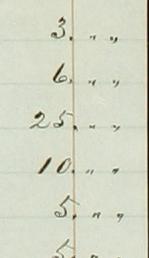 3. " "
6. " "
25. " "
10. " "
5. " "
5. " "